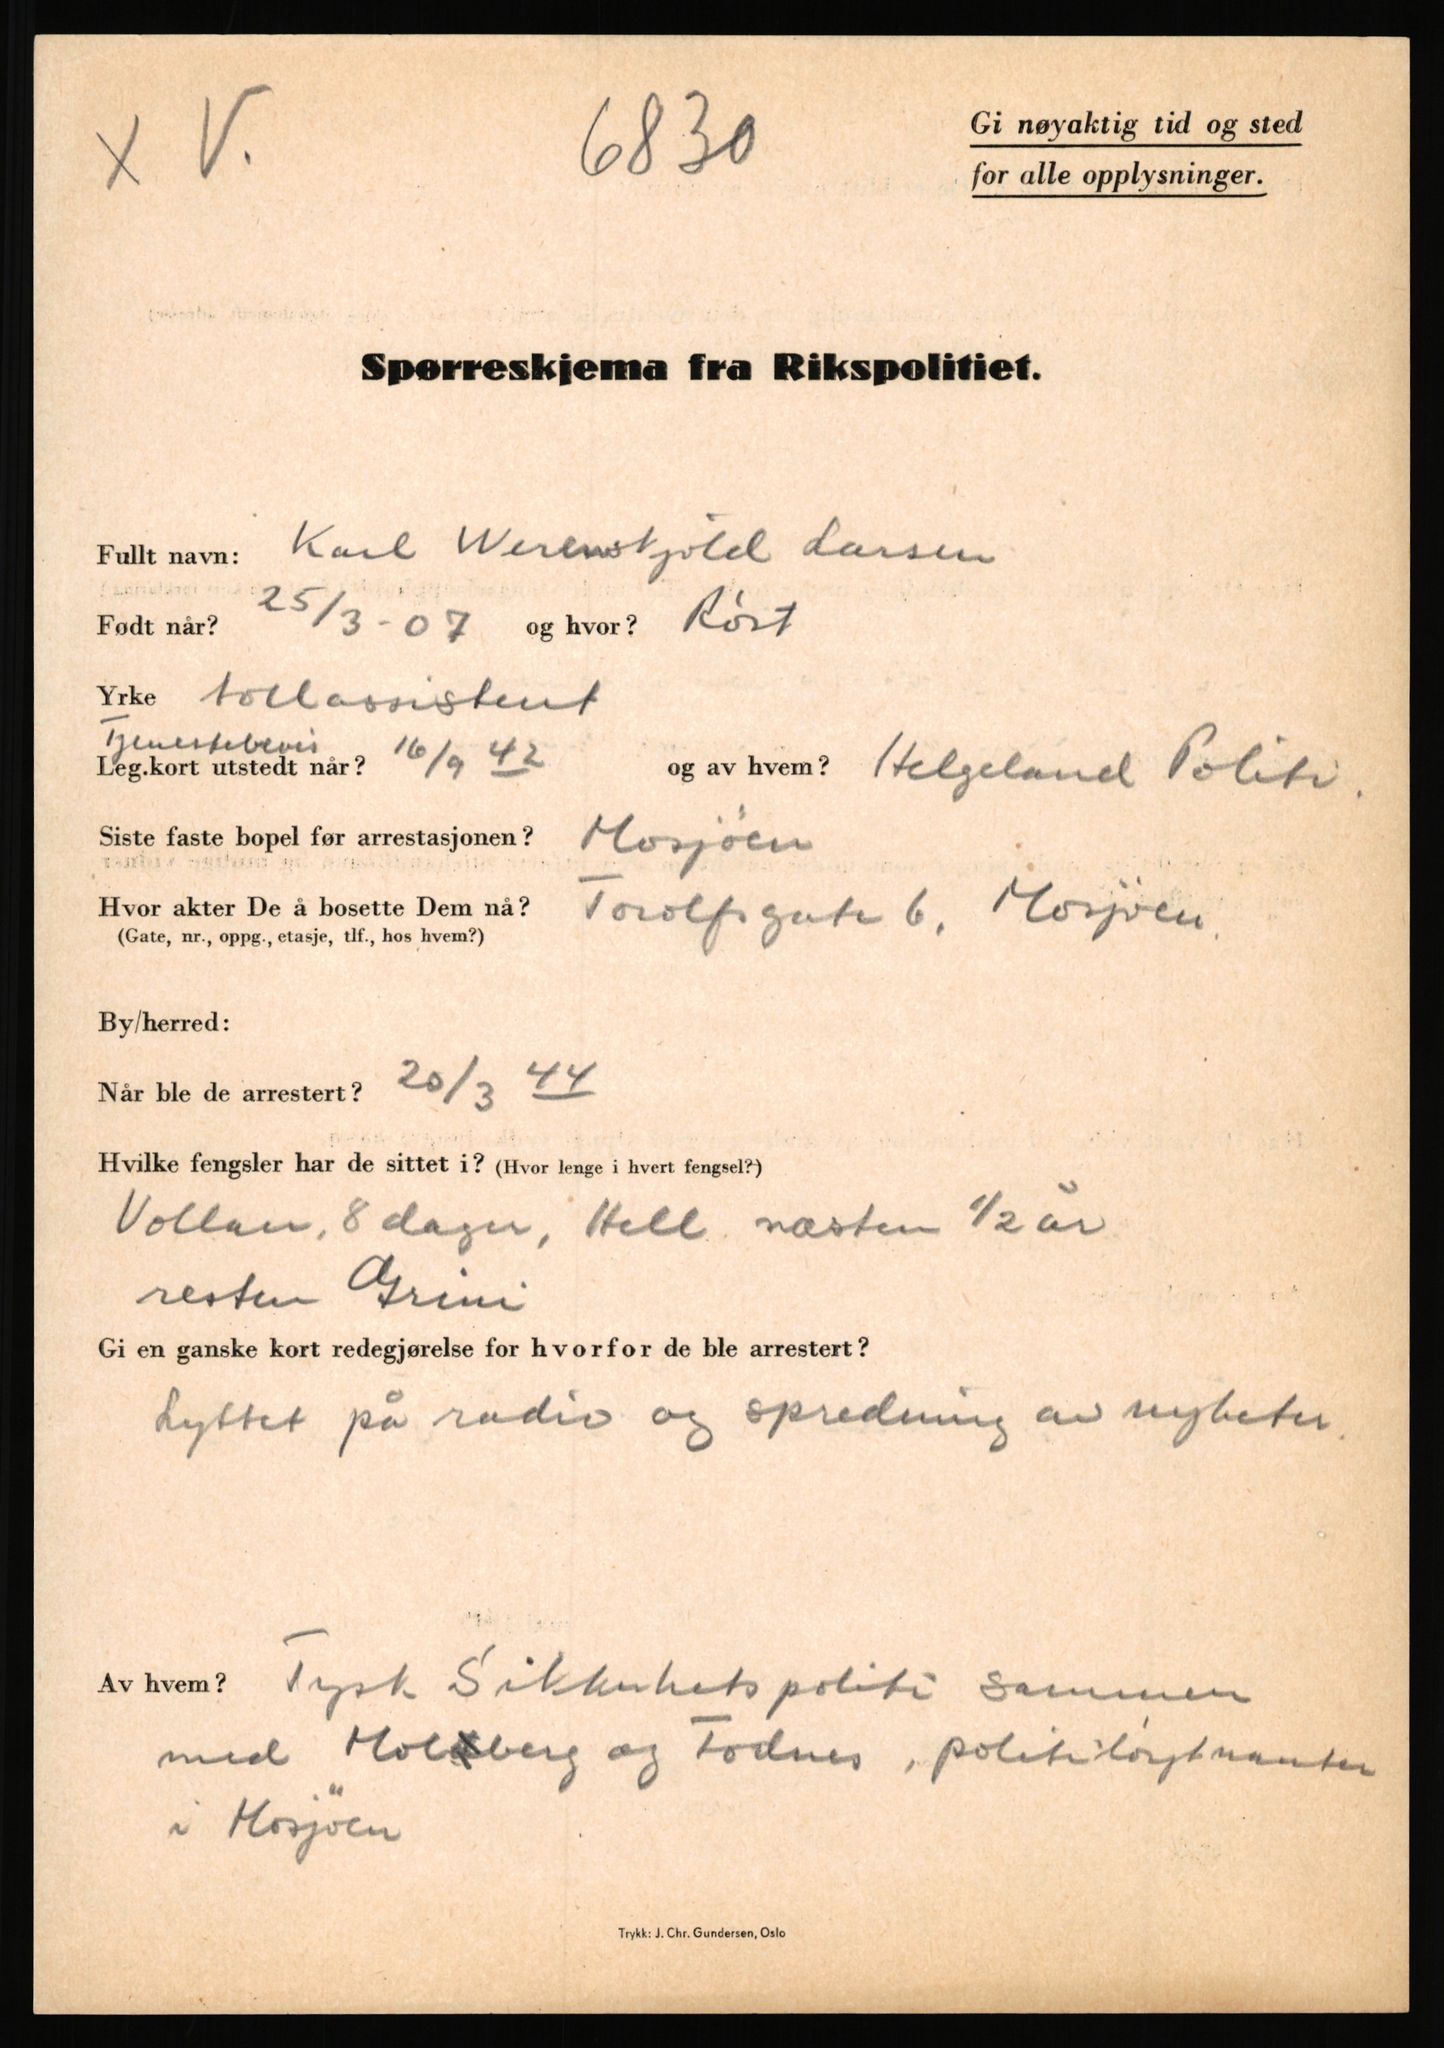 x V. 6830
Gi nøyaktig tid og sted
for alle opplysninger.
Spørreskjema fra Rikspolitiet.
Fullt navn: Karl Werenskjold Larsen
Født når? 25/3-07 og hvor? Røst
Yrke tollassistent
Tjenestebevis
Leg.kort utstedt når? 16/9 42 og av hvem? Helgeland Politi.
Siste faste bopel før arrestasjonen? Mosjöen
Hvor akter De å bosette Dem nå? Torolfsgate 6, Mosjöen.
(Gate, nr., oppg., etasje, tlf., hos hvem?)
By/herred:
Når ble de arrestert? 20/3 44
Hvilke fengsler har de sittet i? (Hvor lenge i hvert fengsel?)
Vollan, 8 dager, Hell næsten 1/2 år
resten Grini
Gi en ganske kort redegjørelse for hvorfor de ble arrestert?
Lyttet på radio og spredning av nyheter.
Av hvem? Tysk Sikkerhetspoliti sammen
med Molberg og Fodnes, politiløytnanter
i Mosjöen
Trykk: J. Chr. Gundersen, Oslo